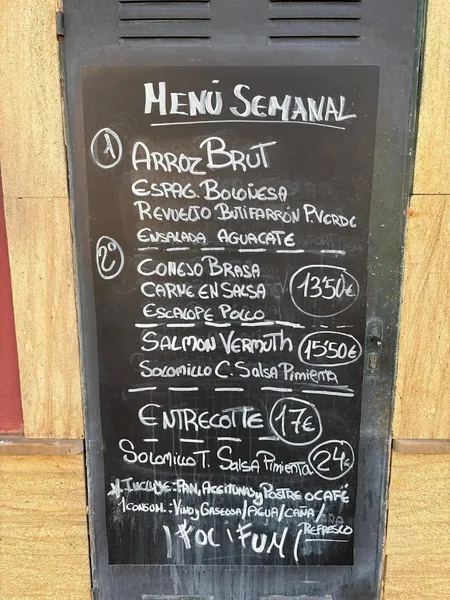 MENÚ SEMANAL
1 ARROZ BRUT
ESPAG. BOLOÑESA
REVUELTO BUTIFARRÓN P.VERDE
ENSALADA AGUACATE
2º CONEJO BRASA
CARNE EN SALSA 13'50€
ESCALOPE POLLO
SALMON VERMUTH 15'50€
SOLOMILLO C. SALSA PIMIENTA
ENTRECOTTE 17€
SOLOMILLO T. SALSA PIMIENTA 24€
*INCLUYE: PAN, ACEITUNAS y POSTRE O CAFÉ
1 CONSUM.: VINO y GASEOSA/AGUA/CAÑA/
REFRESCO
¡FOC I FUM!